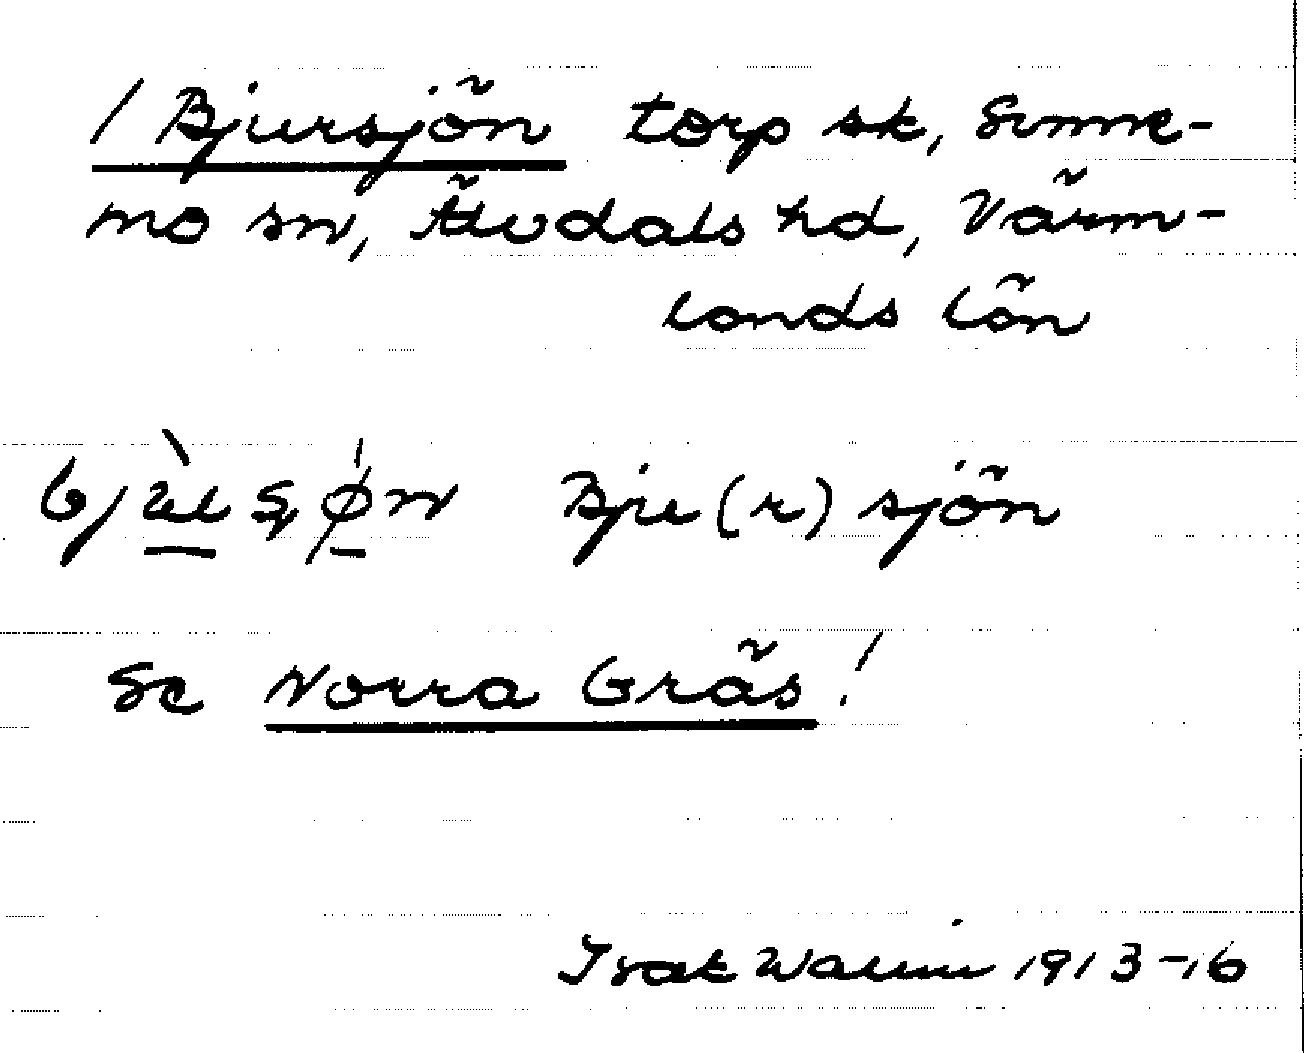 / Bjursjön torp sk, Sunne-
mo sn, Älvdals hd, Värm-
lands län
Bju(r)sjön
Se Norra Gräs!
Isak Wallin 1913-16